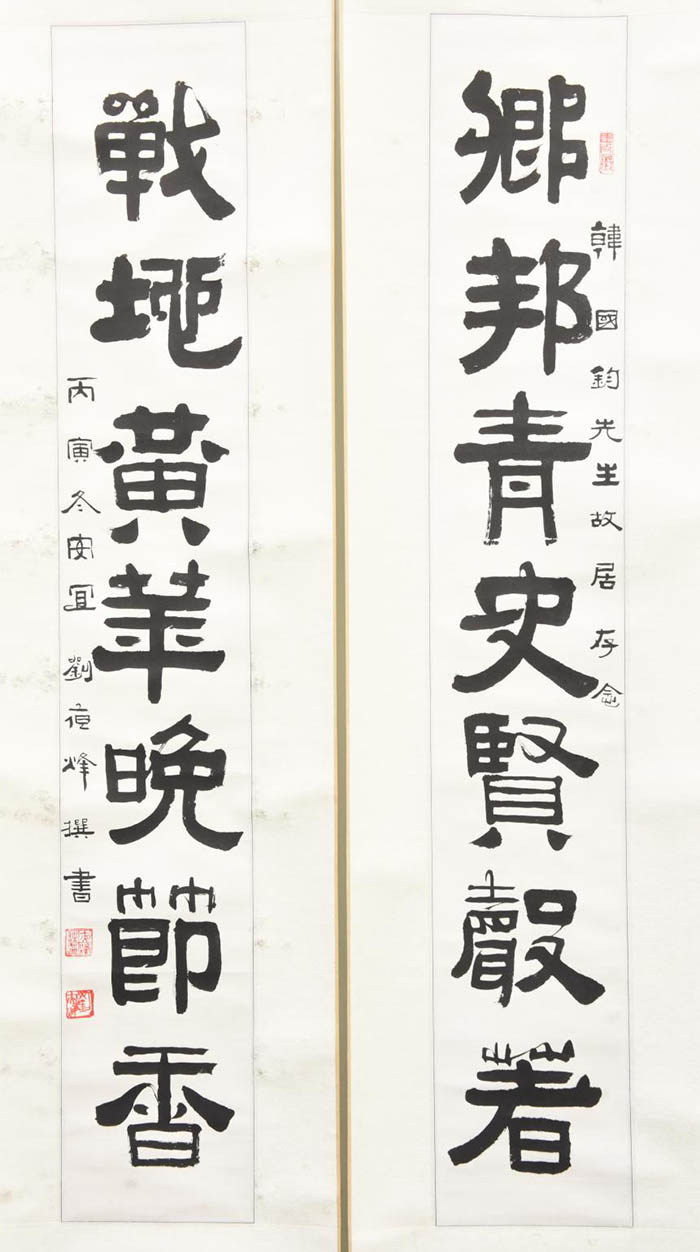 鄉邦青史賢聲著
韓國鈞先生故居存念
戰地黃華晚節香
丙寅冬安宜劉夜烽撰書